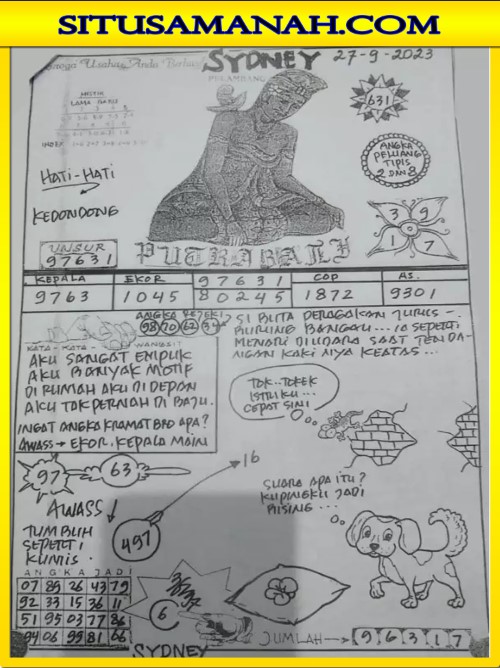 SITUSAMANAH.COM
SYDNEY 27-9-2023
Semoga Usaha Anda Berhasil
PELAMBANG
MISTIK
LAMA BARU
INDEX
631
HATI-HATI
ANGKA
PELUANG
TIPIS
2 DAN 8
KEDONDONG
3 9
1 7
UNSUR
97631
PUTRA BALI
KEPALA EKOR 97631 COP AS.
9763 1045 80245 1872 9301
ANGKA REJEKI
98 70 62 34
KATA-KATA WANGSIT
SI BUTA PERAGAKAN JURUS -
BURUNG BANGAU... IA SEPERTI
MENARI DI UDARA SAAT TENDA-
NGAN KAKI NYA KEATAS...
AKU SANGAT EMPUK
AKU BANYAK MOTIF
DI RUMAH AKU DI DEPAN
AKU TAK PERNAH DI BAJU.
INGAT ANGKA KRAMAT BRO APA?
AWASS → EKOR, KEPALA MAIN
TOK..TOKEK
ISTRIKU...
CEPAT SINI
97 63
16
SUARA APA ITU?
KUPINGKU JADI
BISING...
AWASS
497
TUMBUH
SEPERTI
KUMIS.
ANGKA JADI
07 89 26 43 79
92 33 15 36 11
51 95 03 77 86
94 06 99 81 66
6
JUMLAH → 96317
SYDNEY